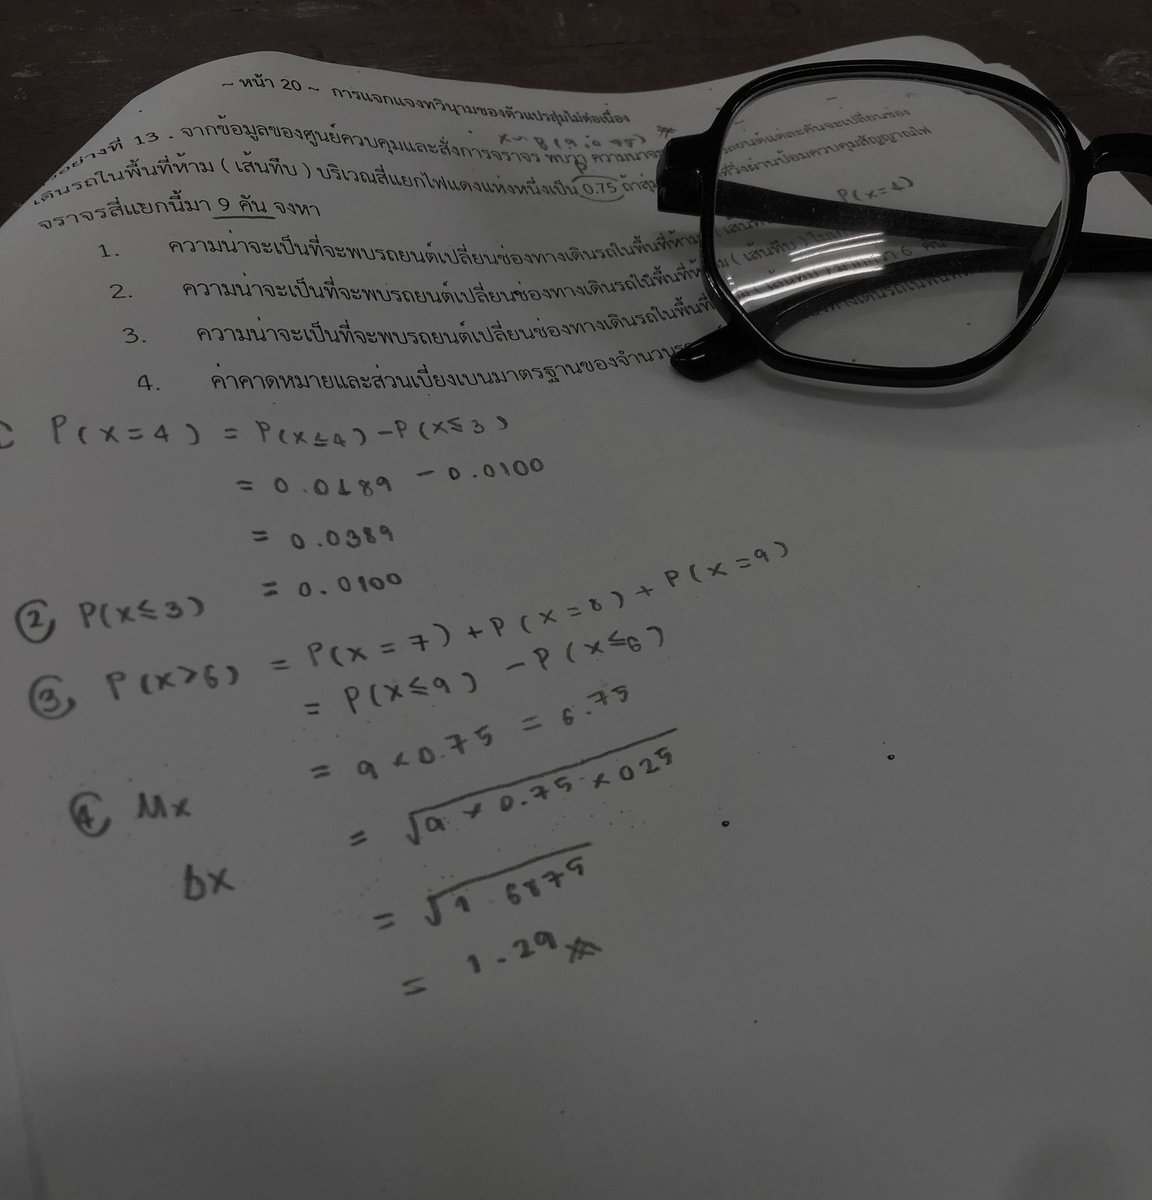 ~ หน้า 20 ~ การแจกแจงทวินามของตัวแปรสุ่มไม่ต่อเนื่อง
13 . จากข้อมูลของศูนย์ควบคุมและสั่งการจราจร พบว่า ความน่าจะ ยนต์แต่ละคันจะเปลี่ยนช่อง
เดินรถในพื้นที่ห้าม ( เส้นทึบ ) บริเวณสี่แยกไฟแดงแห่งหนึ่งเป็น 0.75 ถ้าสุ่ม ที่วิ่งผ่านป้อมควบคุมสัญญาณไฟ
จราจรสี่แยกนี้มา 9 คัน จงหา
P(x=4)
1. ความน่าจะเป็นที่จะพบรถยนต์เปลี่ยนช่องทางเดินรถในพื้นที่ห้าม
2. ความน่าจะเป็นที่จะพบรถยนต์เปลี่ยนช่องทางเดินรถในพื้นที่ห้าม ( เส้นทึบ )
3. ความน่าจะเป็นที่จะพบรถยนต์เปลี่ยนช่องทางเดินรถในพื้นที่
4. ค่าคาดหมายและส่วนเบี่ยงเบนมาตรฐานของจำนวนรถ
P(x=4) = P(x≤4) - P(x≤3)
= 0.0489 - 0.0100
= 0.0389
② P(x≤3) = 0.0100
③ P(x>6) = P(x=7) + P(x=8) + P(x=9)
= P(x≤9) - P(x≤6)
④ Mx = 9 × 0.75 = 6.75
σx = √9 × 0.75 × 025
= √1.6875
= 1.29